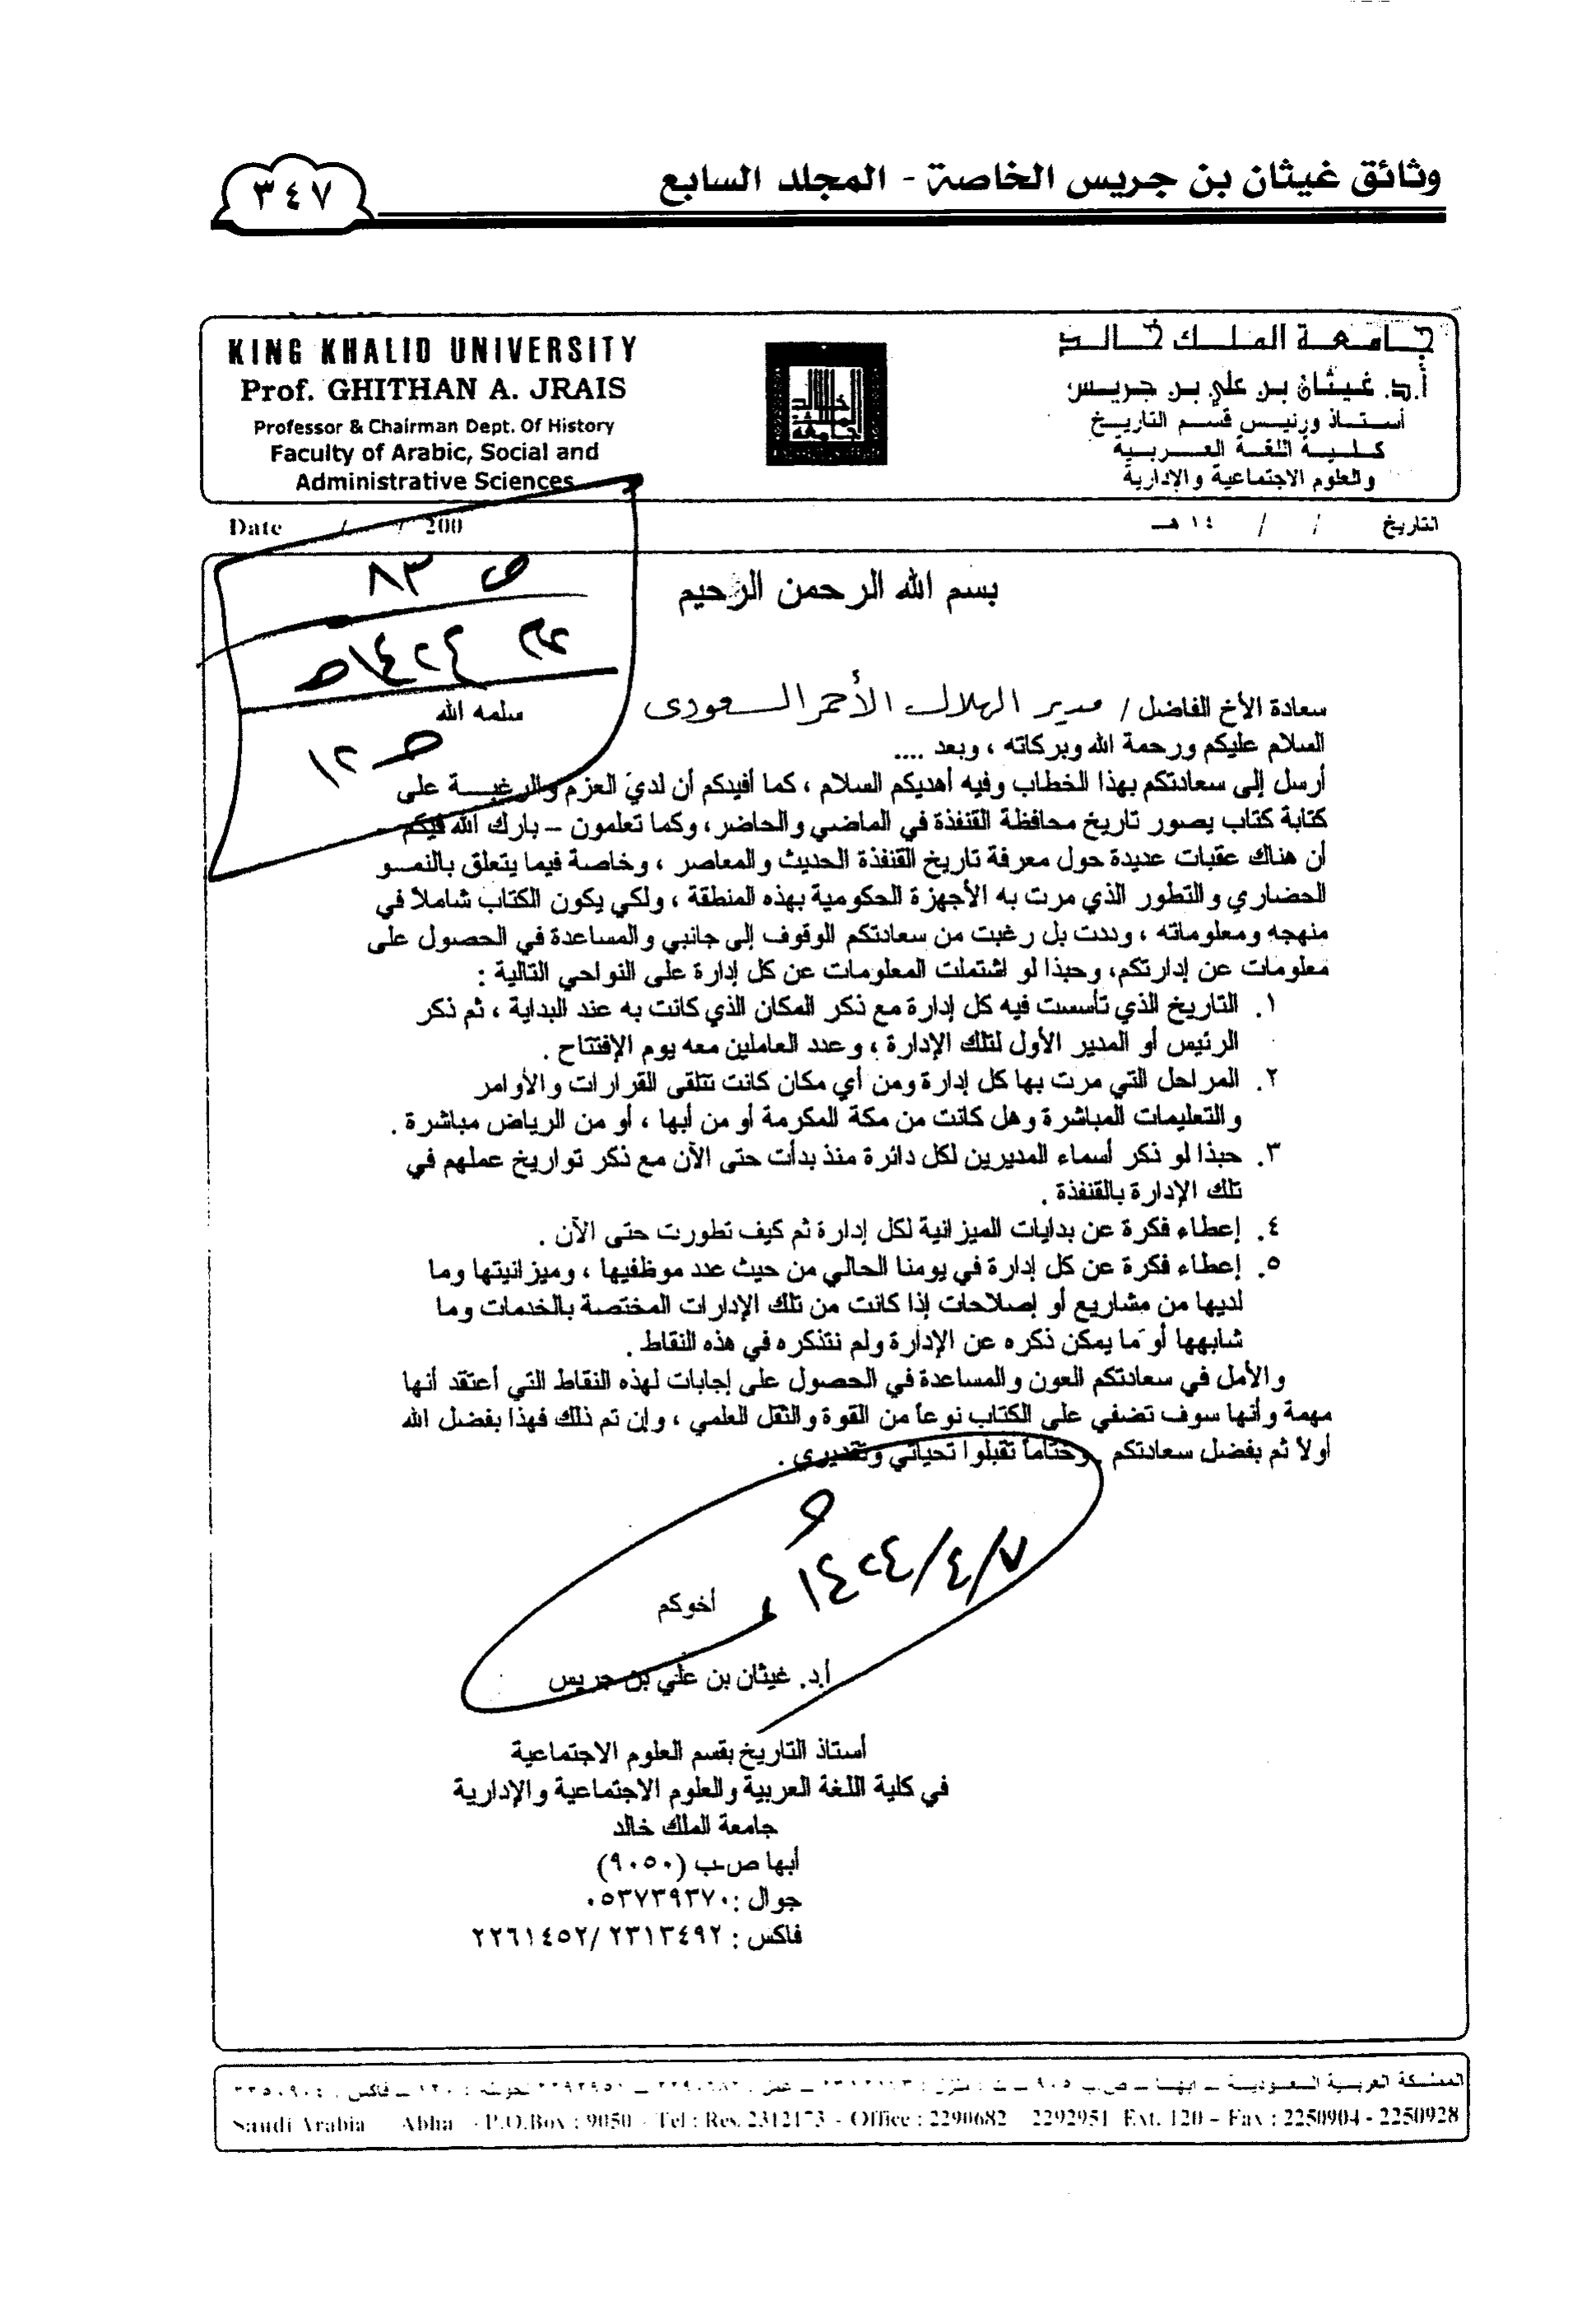 وثائق غيثان بن جريس الخاصة - المجلد السابع
٣٤٧
جامعة الملك خالد
أ.د. غيثان بن علي بن جريس
أستاذ ورئيس قسم التاريخ
كلية اللغة العربية
والعلوم الاجتماعية والإدارية
KING KHALID UNIVERSITY
Prof. GHITHAN A. JRAIS
Professor & Chairman Dept. Of History
Faculty of Arabic, Social and
Administrative Sciences
التاريخ / / ١٤ هـ
Date / / 200
ص ٨٣
١٤٢٤هـ
ص ١٢
بسم الله الرحمن الرحيم
سعادة الأخ الفاضل / مدير الهلال الأحمر السعودى سلمه الله
السلام عليكم ورحمة الله وبركاته ، وبعد ....
أرسل إلى سعادتكم بهذا الخطاب وفيه أهديكم السلام ، كما أفيدكم أن لدي العزم والرغبة على
كتابة كتاب يصور تاريخ محافظة القنفذة في الماضي والحاضر، وكما تعلمون – بارك الله فيكم –
أن هناك عقبات عديدة حول معرفة تاريخ القنفذة الحديث والمعاصر ، وخاصة فيما يتعلق بالنمو
الحضاري والتطور الذي مرت به الأجهزة الحكومية بهذه المنطقة ، ولكي يكون الكتاب شاملا في
منهجه ومعلوماته ، وددت بل رغبت من سعادتكم الوقوف إلى جانبي والمساعدة في الحصول على
معلومات عن إدارتكم، وحبذا لو اشتملت المعلومات عن كل إدارة على النواحي التالية :
١. التاريخ الذي تأسست فيه كل إدارة مع ذكر المكان الذي كانت به عند البداية ، ثم ذكر
الرئيس أو المدير الأول لتلك الإدارة ، وعدد العاملين معه يوم الإفتتاح .
٢. المراحل التي مرت بها كل إدارة ومن أي مكان كانت تتلقى القرارات والأوامر
والتعليمات المباشرة وهل كانت من مكة المكرمة أو من أبها ، أو من الرياض مباشرة .
٣. حبذا لو ذكر أسماء المديرين لكل دائرة منذ بدأت حتى الآن مع ذكر تواريخ عملهم في
تلك الإدارة بالقنفذة .
٤. إعطاء فكرة عن بدايات الميزانية لكل إدارة ثم كيف تطورت حتى الآن .
٥. إعطاء فكرة عن كل إدارة في يومنا الحالي من حيث عدد موظفيها ، وميزانيتها وما
لديها من مشاريع أو إصلاحات إذا كانت من تلك الإدارات المختصة بالخدمات وما
شابهها أو ما يمكن ذكره عن الإدارة ولم نتذكره في هذه النقاط .
والأمل في سعادتكم العون والمساعدة في الحصول على إجابات لهذه النقاط التي أعتقد أنها
مهمة وأنها سوف تضفي على الكتاب نوعاً من القوة والثقل العلمي ، وإن تم ذلك فهذا بفضل الله
أولا ثم بفضل سعادتكم . وختاماً تقبلوا تحياتي وتقديري .
١٤٢٤/٤/٧
أخوكم
أ.د. غيثان بن علي بن جريس
أستاذ التاريخ بقسم العلوم الاجتماعية
في كلية اللغة العربية والعلوم الاجتماعية والإدارية
جامعة الملك خالد
أبها ص.ب (٩٠٥٠)
جوال : ٠٥٣٧٣٩٣٧٠
فاكس : ٢٢٦١٤٥٢/٢٣١٣٤٩٢
المملكة العربية السعودية – أبها –
Saudi Arabia Abha - P.O.Box : 9050 - Tel : Res. 2312173 - Office : 2290682 2292951 Ext. 120 – Fax : 2250904 - 2250928